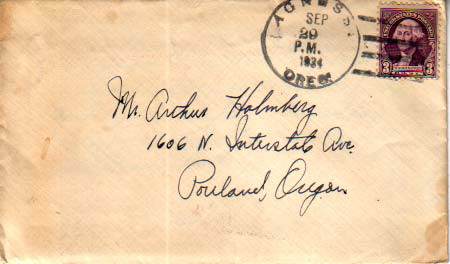 AGNESS
SEP
29
P.M.
1934
OREG.
UNITED STATES POSTAGE
3 3
Mr. Arthur Holmberg
1606 N. Interstate Ave.
Portland, Oregon